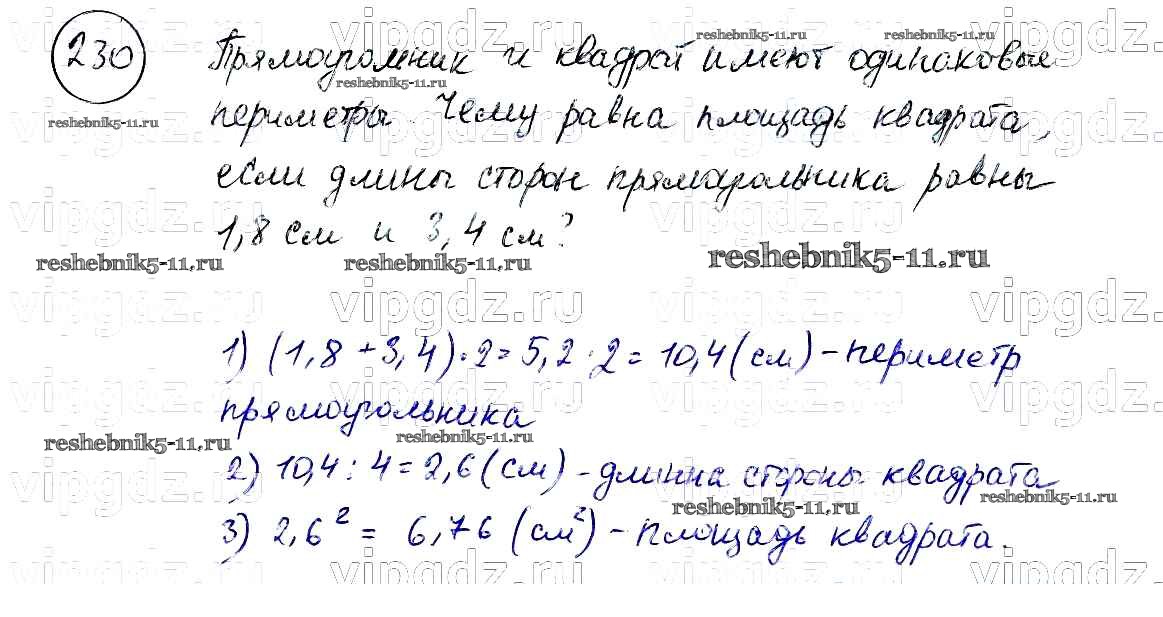 230
Прямоугольник и квадрат имеют одинаковые
периметры. Чему равна площадь квадрата,
если длины сторон прямоугольника равны
1,8 см и 3,4 см?
1) (1,8 + 3,4) · 2 = 5,2 · 2 = 10,4 (см) - периметр
прямоугольника
2) 10,4 : 4 = 2,6 (см) - длинна стороны квадрата
3) 2,6² = 6,76 (см²) - площадь квадрата.
reshebnik5-11.ru
vipgdz.ru